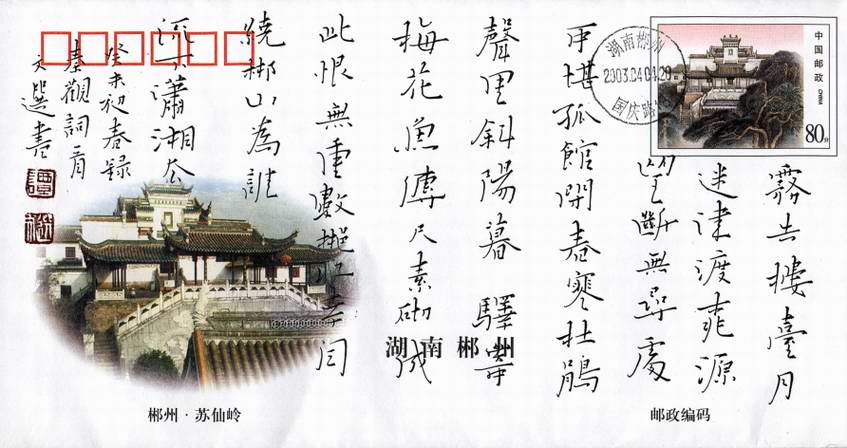 霧失樓臺月
迷津渡桃源
望斷無尋處
可堪孤館閉春寒杜鵑
聲里斜陽暮 驛寄
梅花魚傳尺素砌成
此恨無重數郴江幸自
繞郴山為誰
流下瀟湘去
癸未初春録
秦觀詞一首
文選書
中国邮政 CHINA
80分
湖南郴州
2003.04.04.20
国庆路
湖南郴州
郴州·苏仙岭
邮政编码